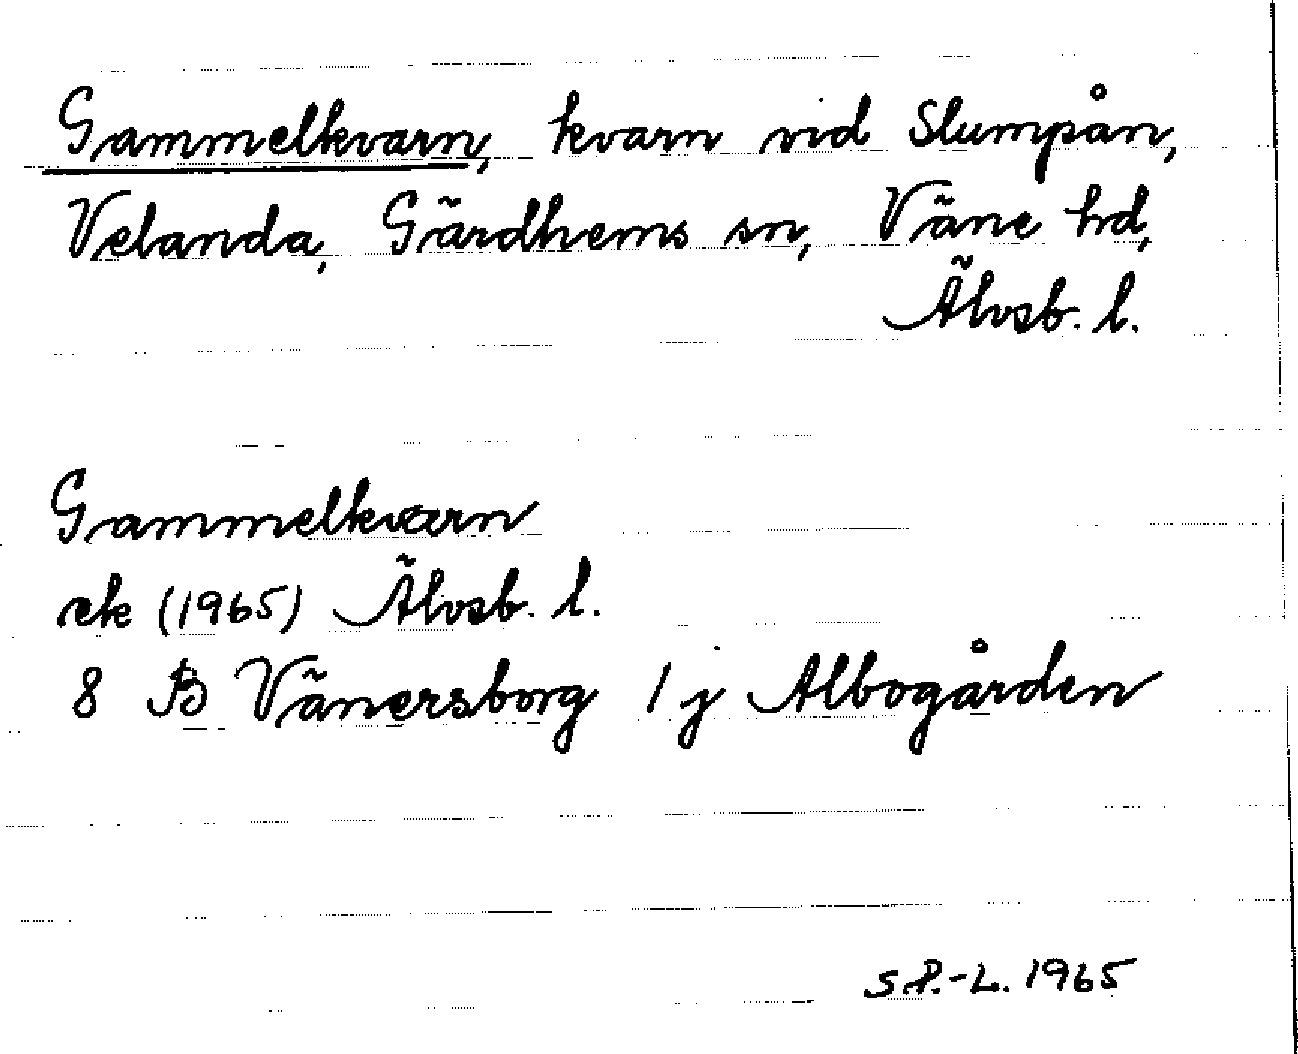 Gammelkvarn, kvarn vid Slumpån,
Velanda, Gärdhems sn, Väne hd,
Älvsb. l.
Gammelkvarn
ek (1965) Älvsb. l.
8 B Vänersborg 1 j Albogården
S P.-L. 1965